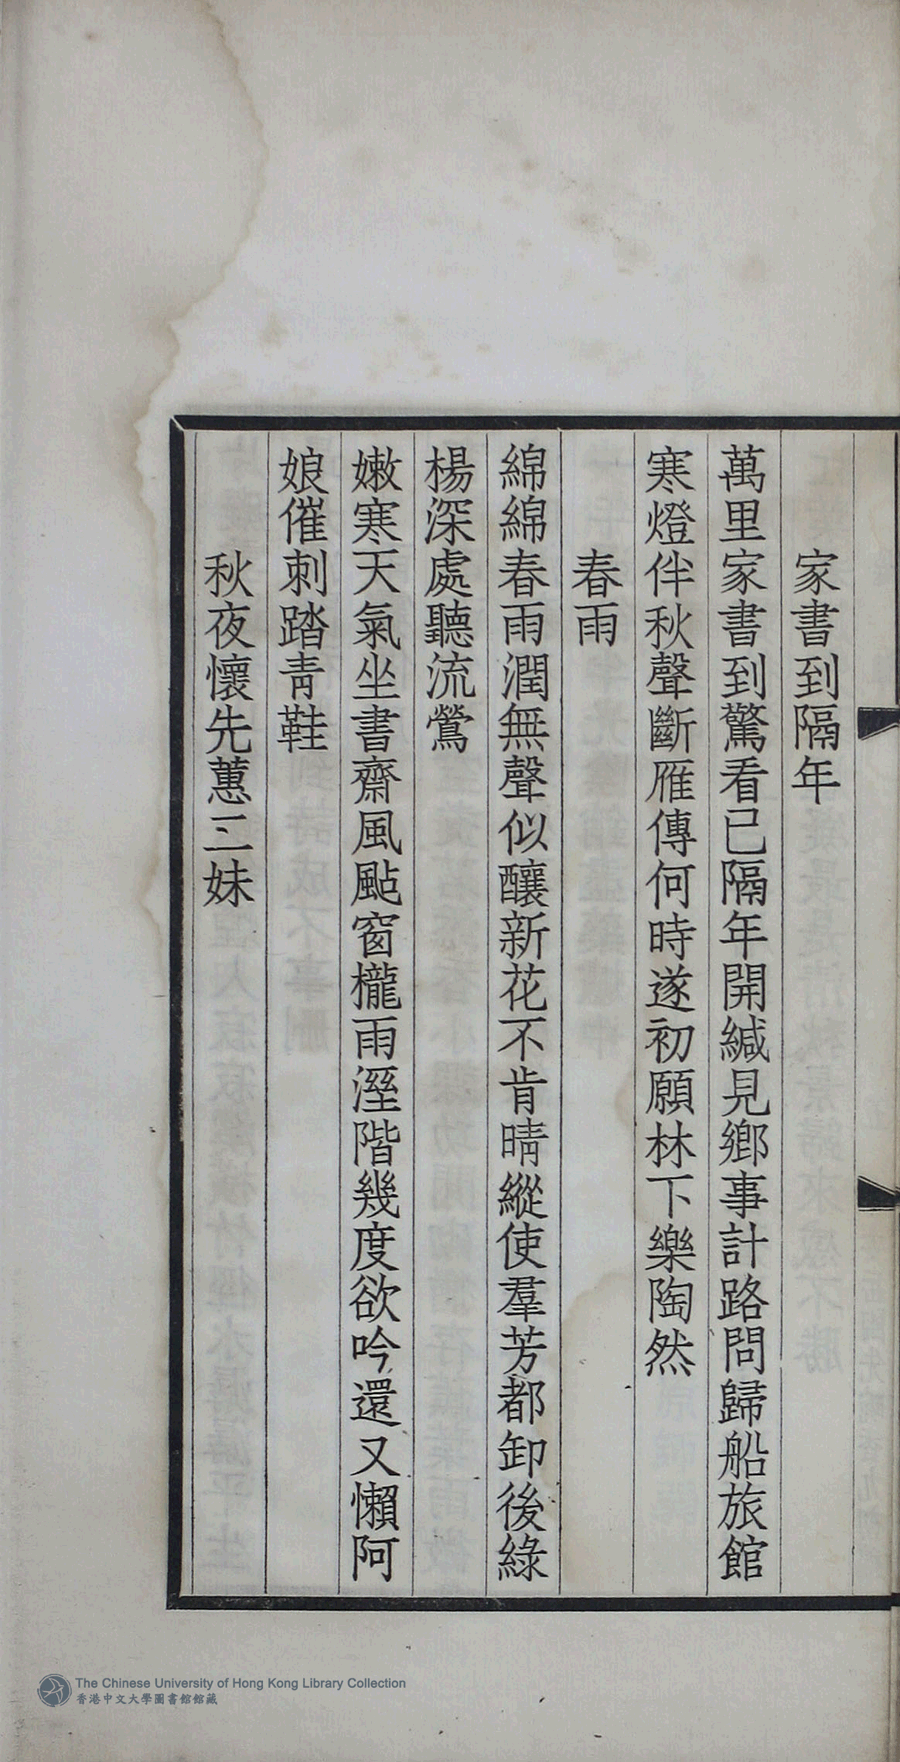 家書到隔年
萬里家書到驚看已隔年開緘見鄉事計路問歸船旅館
寒燈伴秋聲斷雁傳何時遂初願林下樂陶然
春雨
綿綿春雨潤無聲似釀新花不肯晴縱使羣芳都卸後綠
楊深處聽流鶯
嫩寒天氣坐書齋風颭窗櫳雨溼階幾度欲吟還又懶阿
娘催刺踏靑鞋
秋夜懷先蕙三妹
The Chinese University of Hong Kong Library Collection
香港中文大學圖書館館藏